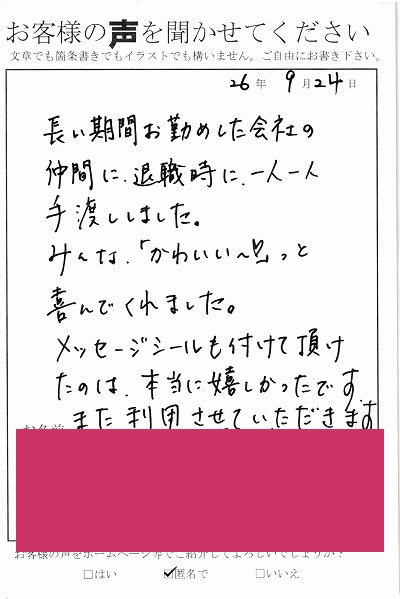 お客様の声を聞かせてください
文章でも箇条書きでもイラストでも構いません。ご自由にお書き下さい。
26年 9月24日
長い期間お勤めした会社の
仲間に、退職時に、一人一人
手渡ししました。
みんな、「かわいい〜♡」っと
喜んでくれました。
メッセージシールも付けて頂け
たのは、本当に嬉しかったです。
また利用させていただきます
お名前
お客様の声をホームページ等でご紹介してよろしいでしょうか？
□はい ☑匿名で □いいえ